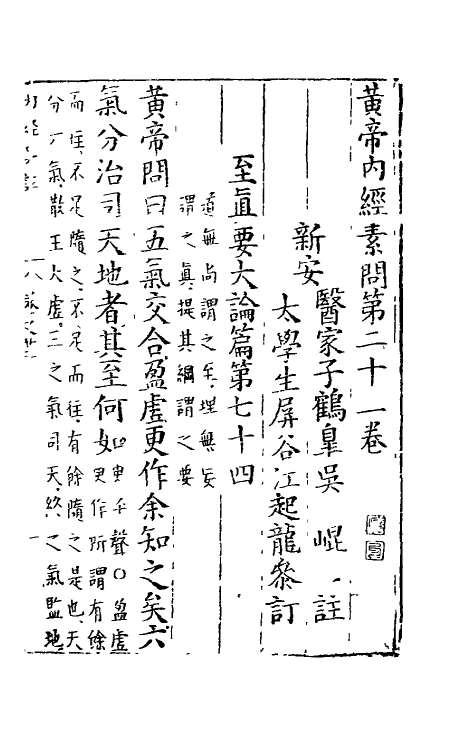 黃帝內經素問第二十一卷
新安
醫家子鶴臯吳 崐 註
太學生屏谷江起龍叅訂
至眞要大論篇第七十四
道無尚謂之至理無妄
謂之眞提其綱謂之要
黃帝問曰五氣交合盈虛更作余知之矣六
氣分治司天地者其至何如
更平聲○盈虛
更作所謂有餘
而往不足隨之不足而往有餘隨之是也天
分六氣散王太虛三之氣司天終之氣監地